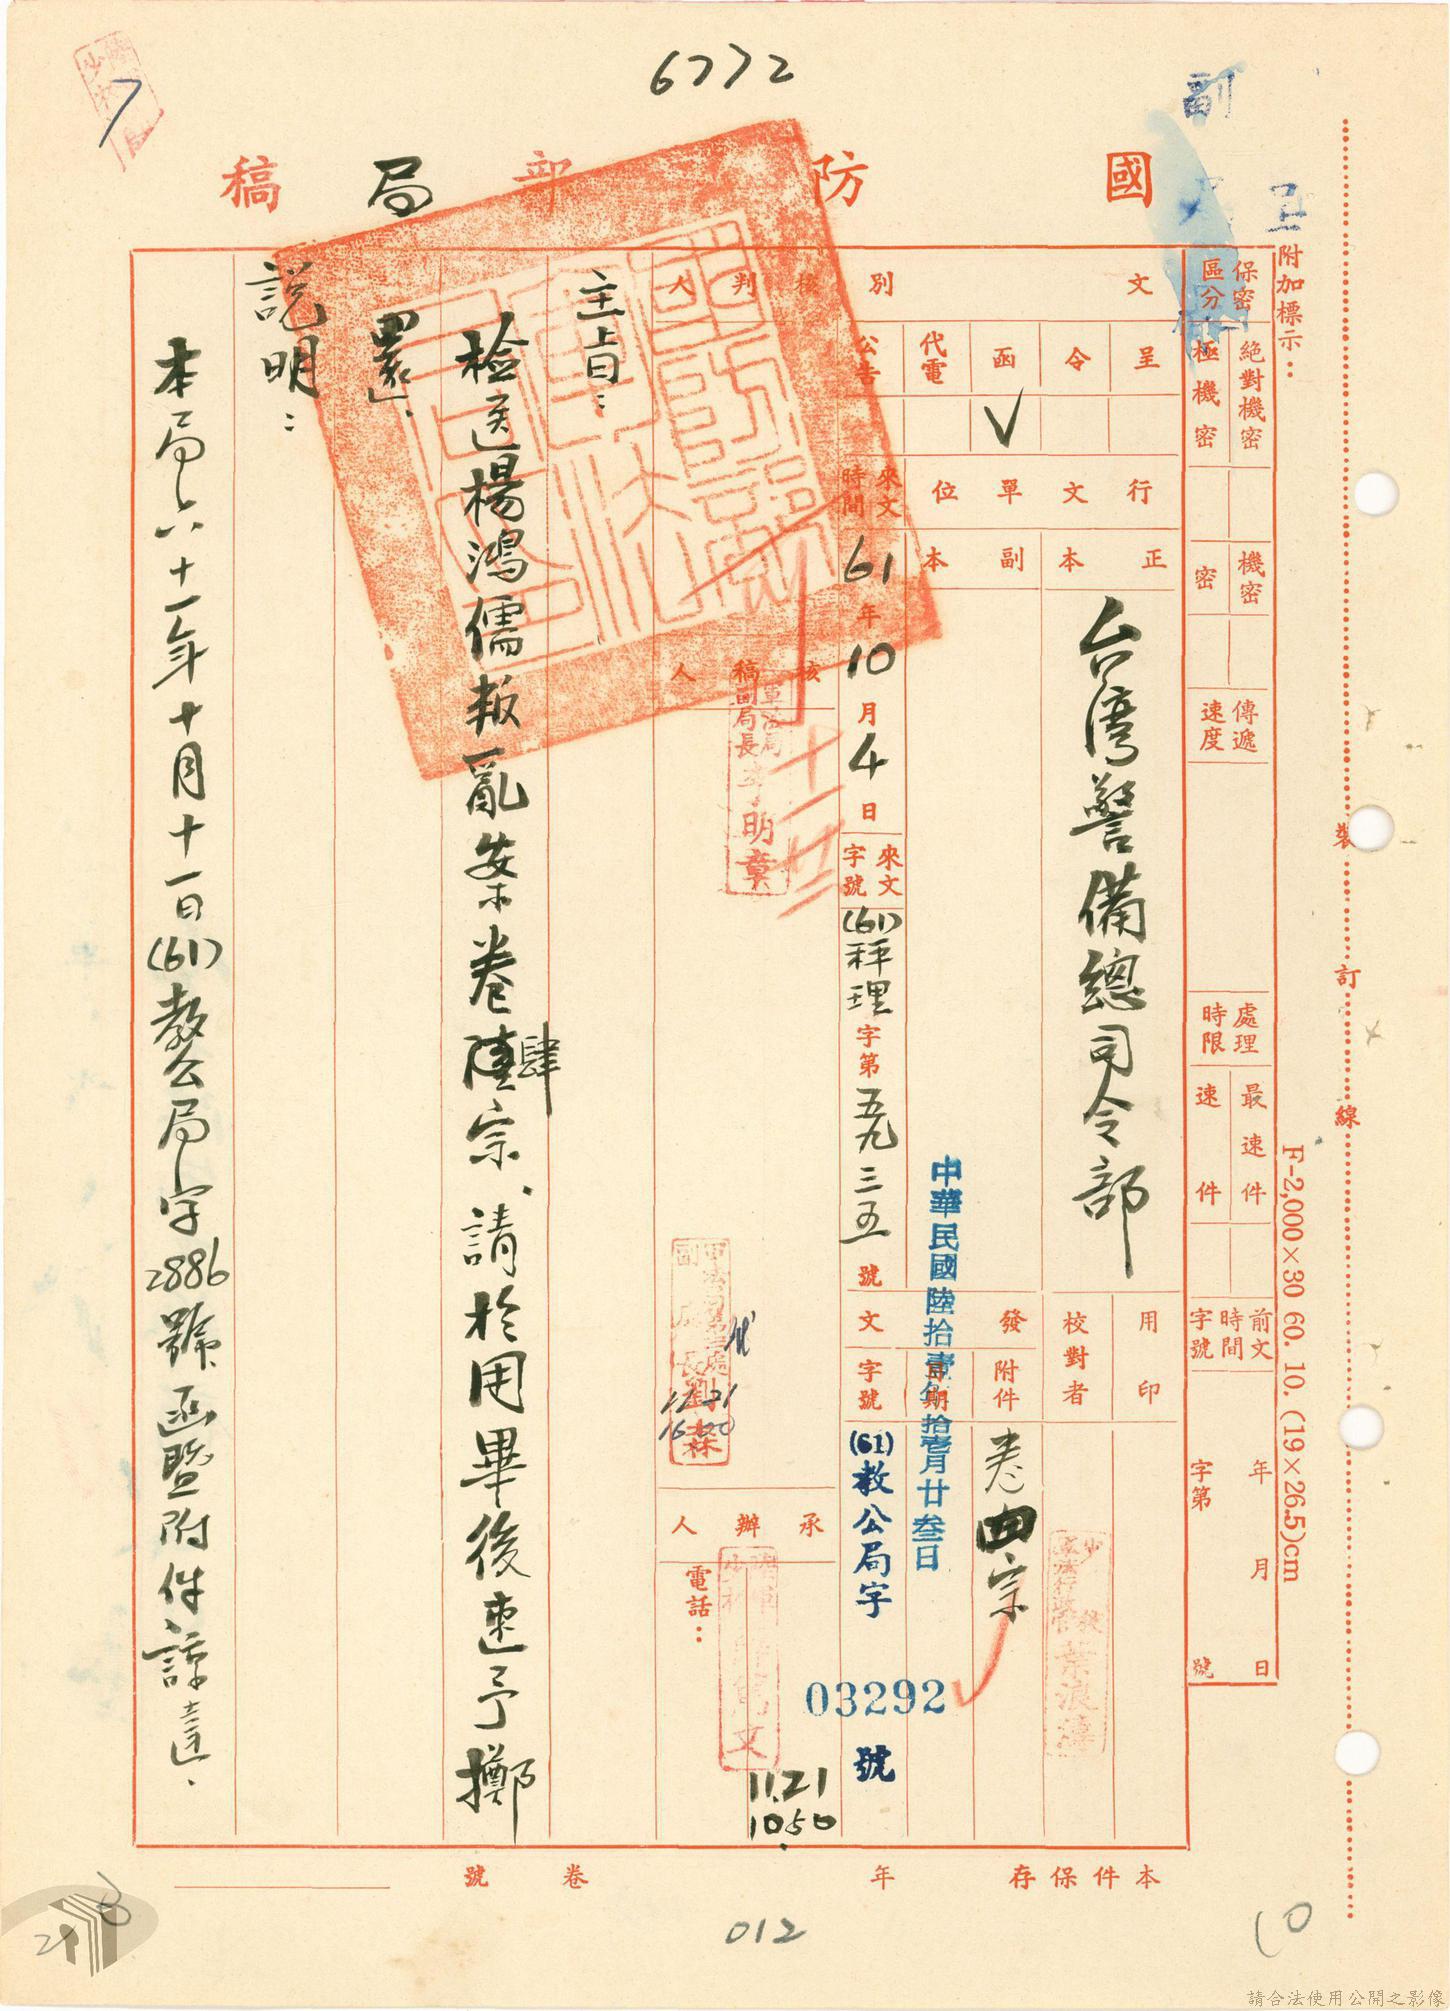 6772
副
國防部局稿
附加標示：
保密區分
絕對機密
極機密
機密
密
傳遞速度
處理時限
最速件
速件
前文時間字號
年月日
字第號
文別
呈
令
函
代電
公告
✓
行文單位
正本
副本
台湾警備總司令部
來文時間
61年10月4日
來文字號
(61)秤理字第五九三五號
用印
校對者
發文
附件
卷四宗
日期
中華民國陸拾壹年拾壹月廿叁日
字號
(61)教公局字
03292
號
核判人
核稿人
軍法局副局長李明章
十一廿二
11.21
16 00
承辦人
電話：
11.21
10.50
主旨：
检送楊鴻儒叛亂案卷肆宗、請於用畢後速予擲
還、
說明：
本局六十一年十月十一日(61)教公局字2886號函暨附件諒達、
本件保存年
卷號
裝訂線
F-2,000×30 60. 10. (19×26.5)cm
012
10
請合法使用公開之影像